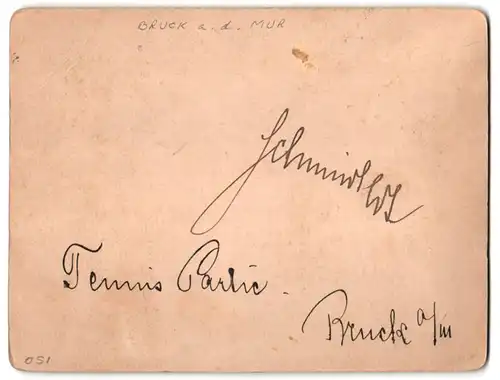 BRUCK a. d. MUR
Schmidt
Tennis Partie.
Bruck a/m
OSI